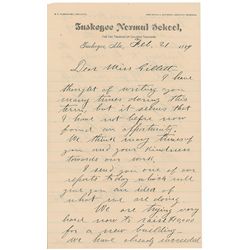 Tuskegee Normal School,
Tuskegee, Ala., Feb. 21 1889
Dear Miss Gillett,
I have
thought of writing you
many times during this
term but it seems that
I have not before now
found an opportunity.
We think many times of
you and your kindness
towards our work.
I send you one of
our reports today which will
give you an idea of
what we are doing
We are trying very
hard now to raise
for a new building
We have already succeeded